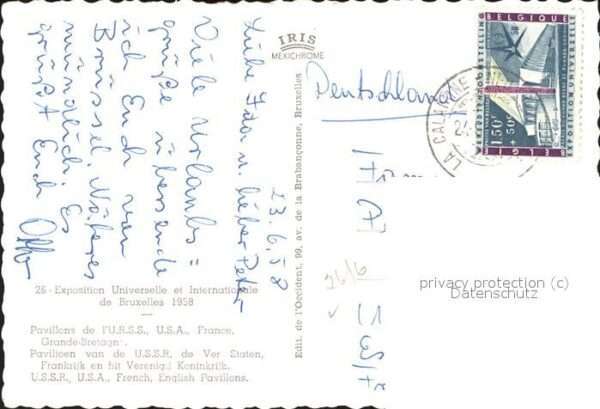 IRIS
MEXICHROME
BELGIQUE
EXPOSITION UNIVERSELLE
1,50F
+ 50c
BELGIË
LA CALAMINE
24
Deutschland
23.6.58
Liebe Frau u. lieber Peter
Viele Urlaubs =
grüße übersende
ich Euch von
Brüssel. Näheres
mündlich. Es
grüßt Euch
26/6
Edit. de l'Occident, 99, av. de la Brabançonne, Bruxelles
privacy protection (c)
Datenschutz
26 - Exposition Universelle et Internationale
de Bruxelles 1958
Pavillons de l'U.R.S.S., U.S.A., France,
Grande-Bretagne.
Paviljoen van de U.S.S.R, de Ver Staten,
Frankrijk en hit Verenigd Koninkrijk.
U.S.S.R., U.S.A., French, English Pavilions.